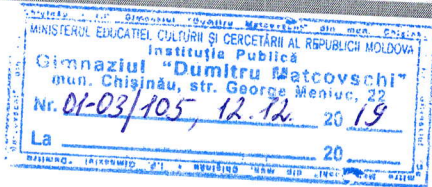 MINISTERUL EDUCAȚIEI, CULTURII ȘI CERCETĂRII AL REPUBLICII MOLDOVA
Instituția Publică
Gimnaziul "Dumitru Matcovschi"
mun. Chișinău, str. George Meniuc, 22
Nr. 01-03/105, 12.12. 2019
La 20